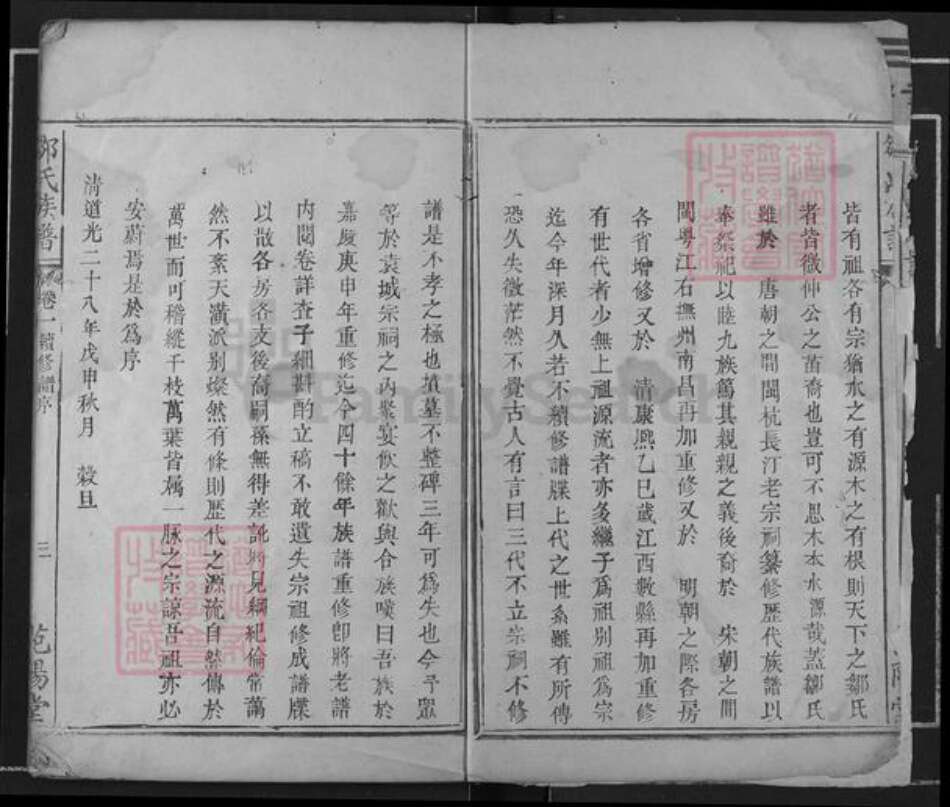 皆有祖各有宗猶水之有源木之有根則天下之鄒氏
者皆微仲公之苗裔也豈可不思木本水源哉蓋鄒氏
雖於 唐朝之間閩杭長汀老宗祠纂修歷代族譜以
奉祭祀以睦九族篤其親親之義後裔於 宋朝之間
閩粵江右撫州南昌再加重修又於 明朝之際各房
各省增修又於 清康熙乙巳歲江西數縣再加重修
有世代者少無上祖源流者亦多繼子爲祖別祖爲宗
迄今年深月久若不續修譜牒上代之世系雖有所傳
恐久失微茫然不覺古人有言曰三代不立宗祠不修
譜是不孝之極也墳墓不整碑三年可爲失也今予眾
等於袁城宗祠之內聚宴飲之歡與合族嘆曰吾族於
嘉慶庚申年重修迄今四十餘年族譜重修卽將老譜
內閱卷詳查子細斟酌立稿不敢遺失宗祖修成譜牒
以散各房各支後裔嗣孫無得差訛將見綱紀倫常萬
然不紊天潢派別燦然有條則歷代之源流自然傳於
萬世而可稽縱千枝萬葉皆屬一脉之宗諒吾祖亦必
安蔚焉是於爲序
清道光二十八年戊申秋月 穀旦
鄒氏族譜 卷一 續修譜序 三 范陽堂
FamilySearch